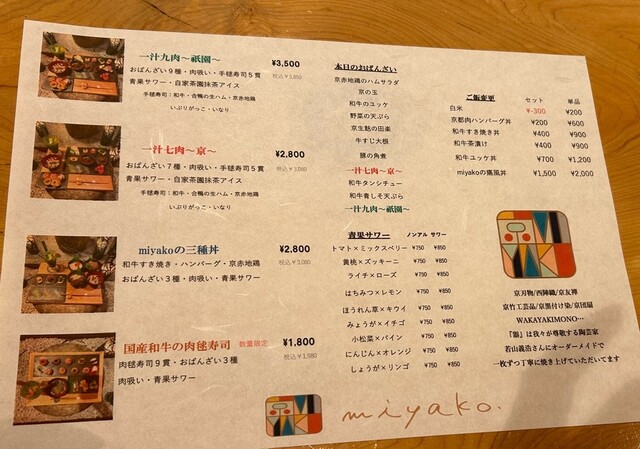 一汁九肉～祇園～ ¥3,500
おばんざい９種・肉吸い・手毬寿司５貫 税込¥3,850
青果サワー・自家茶園抹茶アイス
手毬寿司：和牛・合鴨の生ハム・京赤地鶏
いぶりがっこ・いなり
一汁七肉～京～ ¥2,800
おばんざい７種・肉吸い・手毬寿司５貫 税込¥3,080
青果サワー・自家茶園抹茶アイス
手毬寿司：和牛・合鴨の生ハム・京赤地鶏
いぶりがっこ・いなり
miyakoの三種丼 ¥2,800
和牛すき焼き・ハンバーグ・京赤地鶏 税込¥3,080
おばんざい３種・肉吸い・青果サワー
国産和牛の肉毬寿司 数量限定 ¥1,800
肉毬寿司９貫・おばんざい３種 税込¥1,980
肉吸い・青果サワー
本日のおばんざい
京赤地鶏のハムサラダ
京の玉
和牛のユッケ
野菜の天ぷら
京生麩の田楽
牛すじ大根
豚の角煮
一汁七肉～京～
和牛タンシチュー
和牛青しそ天ぷら
一汁九肉～祇園～
青果サワー ノンアル サワー
トマト×ミックスベリー ¥750 ¥850
黄桃×ズッキーニ ¥750 ¥850
ライチ×ローズ ¥750 ¥850
はちみつ×レモン ¥750 ¥850
ほうれん草×キウイ ¥750 ¥850
みょうが×イチゴ ¥750 ¥850
小松菜×パイン ¥750 ¥850
にんじん×オレンジ ¥750 ¥850
しょうが×リンゴ ¥750 ¥850
ご飯変更 セット 単品
白米 ¥-300 ¥200
京都肉ハンバーグ丼 ¥200 ¥600
和牛すき焼き丼 ¥400 ¥900
和牛茶漬け ¥400 ¥900
和牛ユッケ丼 ¥700 ¥1,200
miyakoの痛風丼 ¥1,500 ¥2,000
京刃物/西陣織/京友禅
京竹工芸品/京黒付け染/京団扇
WAKAYAKIMONO…
「器」は我々が尊敬する陶芸家
若山義浩さんにオーダーメイドで
一枚ずつ丁寧に焼き上げていただいてます
miyako.